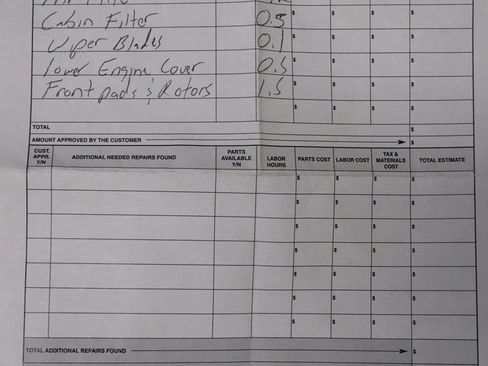 Cabin Filter 0.5 $ $ $ $
Wiper Blades 0.1 $ $ $ $
lower Engine Cover 0.5 $ $ $ $
Front pads & Rotors 1.5 $ $ $ $
$ $ $ $
TOTAL $
AMOUNT APPROVED BY THE CUSTOMER $
CUST. APPR. Y/N ADDITIONAL NEEDED REPAIRS FOUND PARTS AVAILABLE Y/N LABOR HOURS PARTS COST LABOR COST TAX & MATERIALS COST TOTAL ESTIMATE
$ $ $ $
$ $ $ $
$ $ $ $
$ $ $ $
$ $ $ $
$ $ $ $
$ $ $ $
TOTAL ADDITIONAL REPAIRS FOUND $